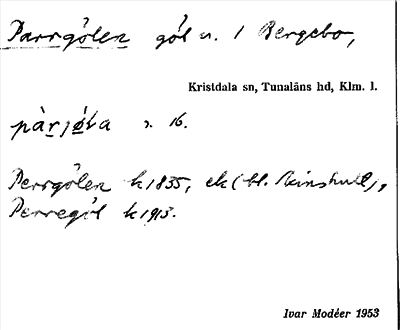 Parrgölen göl n. 1 Bergebo,
Kristdala sn, Tunaläns hd, Klm. l.
pàrjǿla s. 16.
Perrgölen k 1835, ek (bl.
Perregöl k 1913.
Ivar Modéer 1953